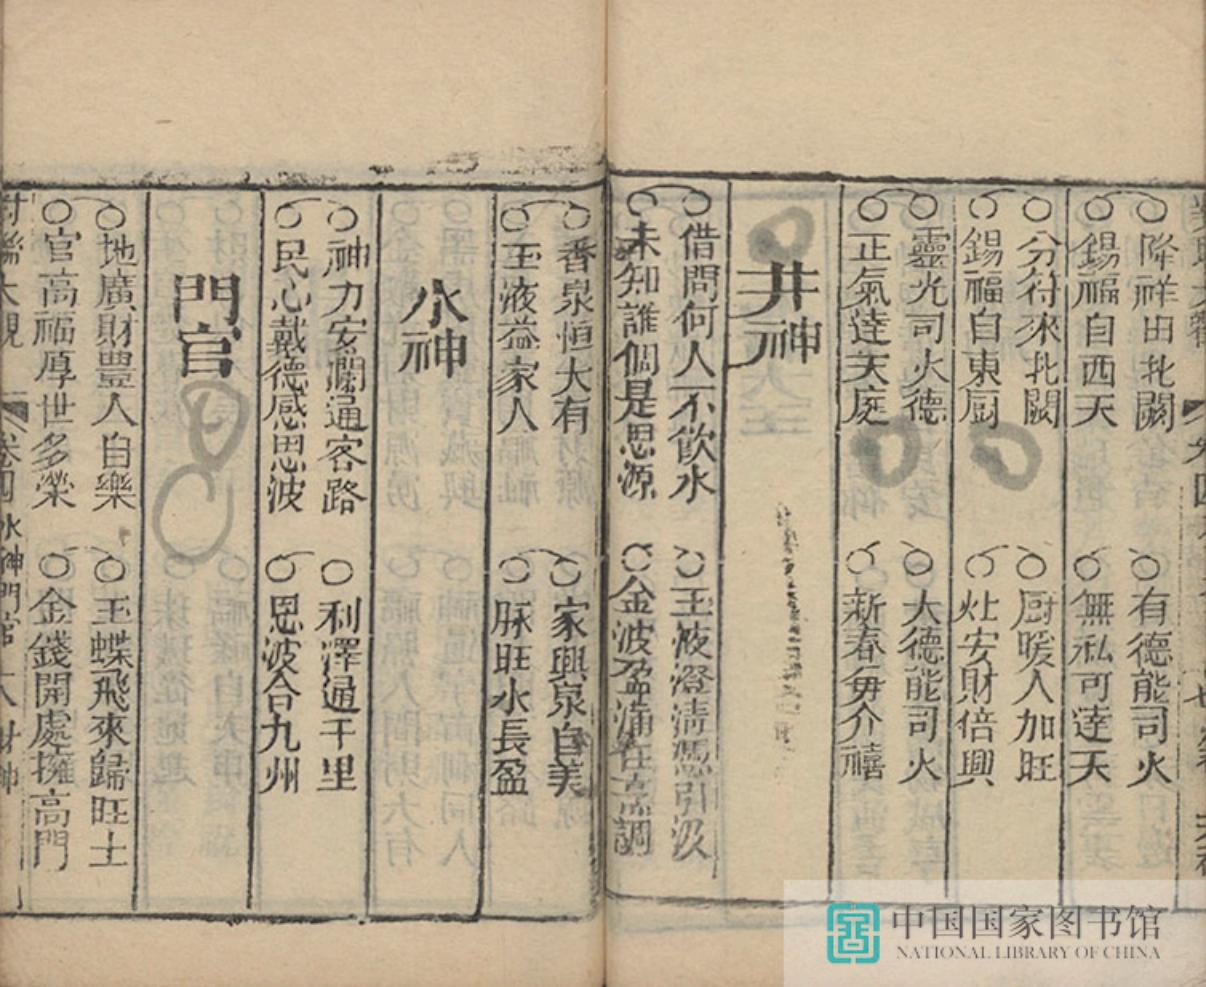 降祥田北闕
有德能司火
錫福自西天
無私可達天
分符來北闕
厨暖人加旺
錫福自東厨
灶安財倍興
靈光司火德
大德能司火
正氣達天庭
新春毎介禧
井神
借問何人不飲水
玉液澄清憑引汲
未知誰個是思源
金波盈滿任烹調
香泉恒大有
家興泉自美
玉液益家人
脉旺水長盈
水神
神力安瀾通客路
利澤通千里
民心戴德感恩波
恩波合九州
門官
地廣財豊人自樂
玉蝶飛來歸旺土
官高福厚世多榮
金錢開處擁高門
對聯大觀 卷四 水神門官 大 財神
中国国家图书馆
NATIONAL LIBRARY OF CHINA